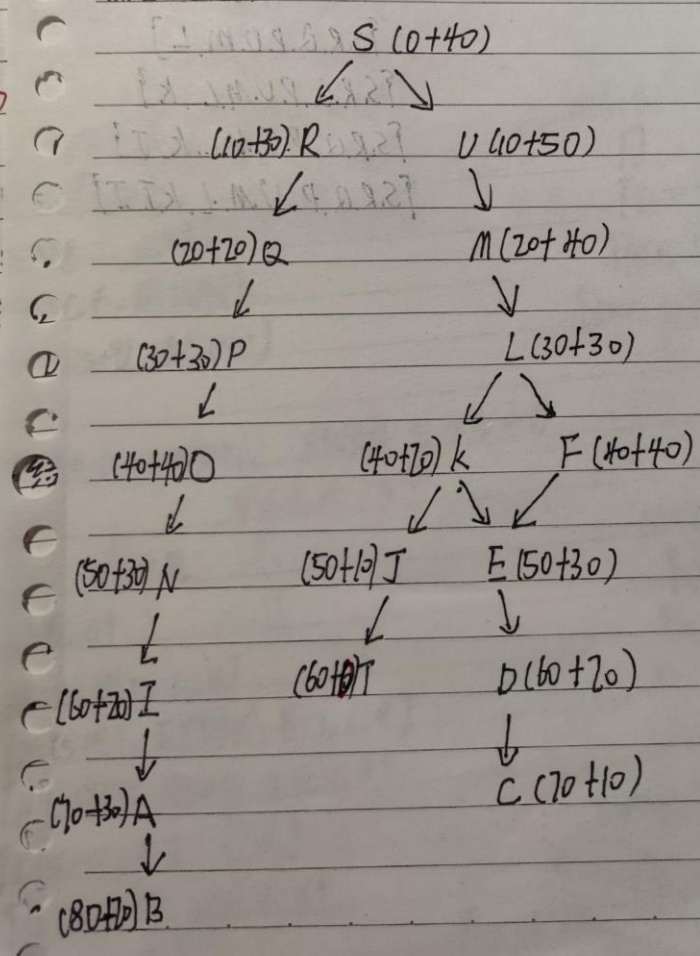 S (0+40)
(10+30) R U (10+50)
(20+20) Q M (20+40)
(30+30) P L (30+30)
(40+40) O (40+20) K F (40+40)
(50+30) N (50+10) J E (50+30)
(60+20) I (60+0) T D (60+20)
(70+30) A C (70+10)
(80+20) B